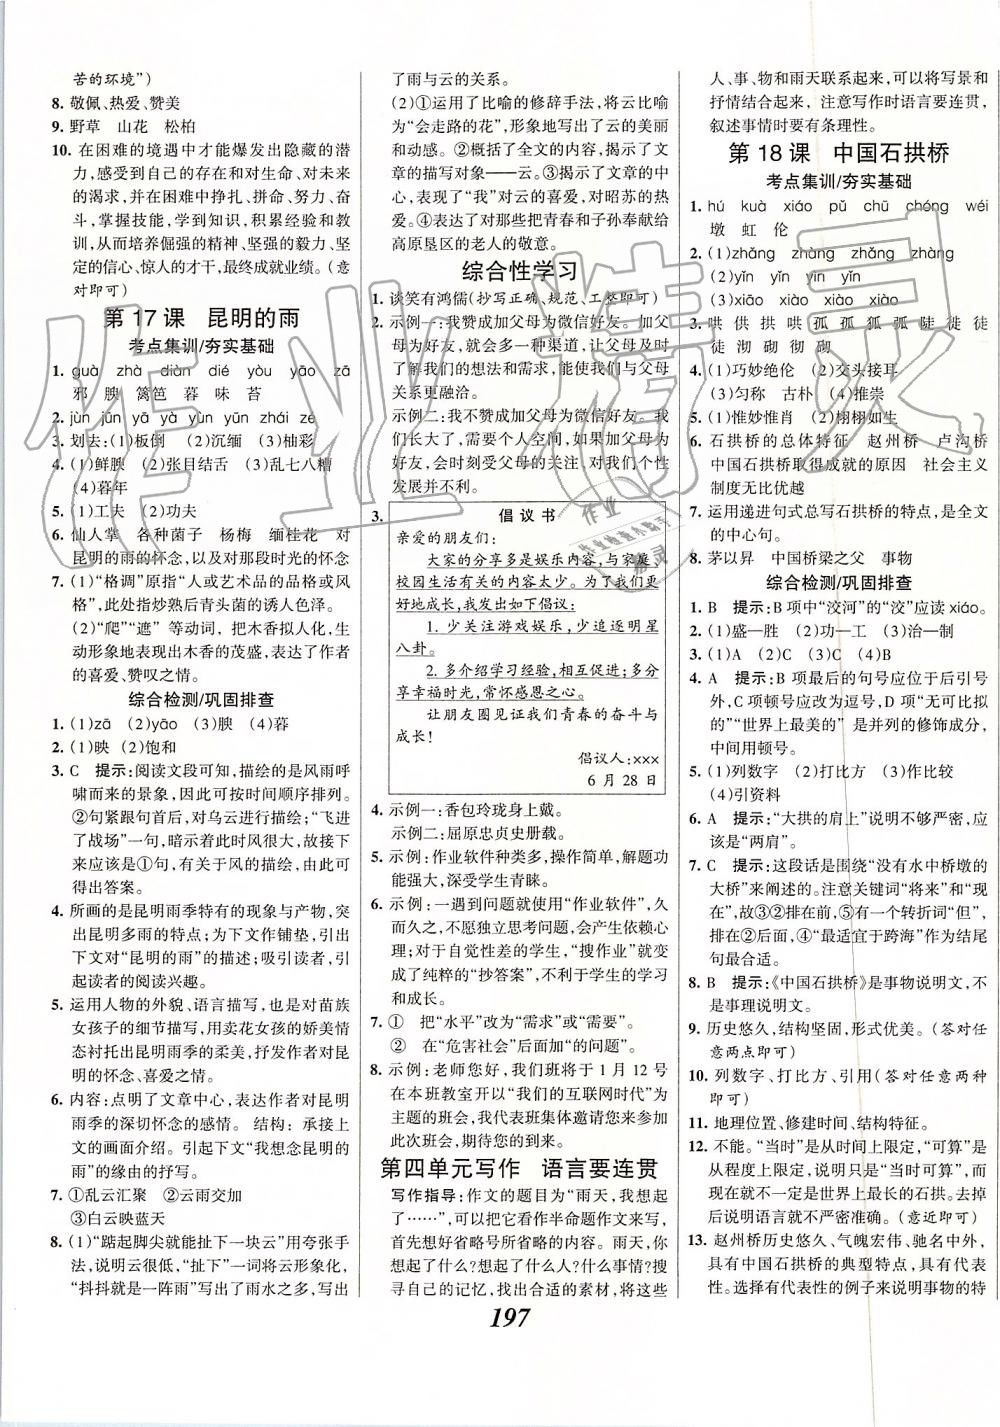 苦的环境”)
8. 敬佩、热爱、赞美
9. 野草　山花　松柏
10. 在困难的境遇中才能爆发出隐藏的潜
力,感受到自己的存在和对生命、对未来
的渴求;在困难中挣扎、拼命、努力、奋
斗,掌握技能,学到知识,积累经验和教
训,从而培养倔强的精神、坚强的毅力、坚
定的信心、惊人的才干,最终成就业绩。(意
对即可)
第 17 课　昆明的雨
考点集训/夯实基础
1. guà　zhà　diàn　dié　yòu　yāo　zā
邪　腴　篱笆　暮　味　苔
2. jùn　jūn　yā　yà　yùn　yūn　zhái　zé
3. 划去:(1)板倒　(2)沉缅　(3)柚彩
4. (1)鲜腴　(2)张目结舌　(3)乱七八糟
(4)暮年
5. (1)工夫　(2)功夫
6. 仙人掌　各种菌子　杨梅　缅桂花　对
昆明的雨的怀念,以及对那段时光的怀念
7. (1)“格调”原指“人或艺术作品的品格或风
格”,此处指炒熟后青头菌的诱人色泽。
(2)“爬”“遮”等动词，把木香拟人化,生
动形象地表现出木香的茂盛,表达了作者
的喜爱、赞叹之情。
综合检测/巩固排查
1. (1)zā　(2)yāo　(3)腴　(4)暮
2. (1)映　(2)饱和
3. C　提示:阅读文段可知,描绘的是风雨呼
啸而来的景象,因此可按时间顺序排列。
②句紧跟句首后,对乌云进行描绘;“飞进
了战场”一句,暗示着此时风很大,故接下
来应该是①句,有关于风的描绘,由此可
得出答案。
4. 所画的是昆明雨季特有的现象与产物,突
出昆明多雨的特点;为下文作铺垫,引出
下文对“昆明的雨”的描写;吸引读者,引
起读者的阅读兴趣。
5. 运用人物的外貌、语言描写,也是对苗族
女孩子的细节描写,用卖花女孩的娇美情
态衬托出昆明雨季的柔美,抒发作者对昆
明的怀念、喜爱之情。
6. 内容:点明了文章中心,写作者对昆明
雨季的深切怀念的感情。结构：承接上
文的画面介绍。引起下文“我想念昆明的
雨”的缘由的抒写。
7. ①乱云汇聚　②云雨交加
③白云映蓝天
8. (1)“踮起脚尖就能扯下一块云”用夸张手
法,说明云很低,“扯下”一词将云形象化,
“抖抖就是一阵雨”写出了雨水之多,写出
了雨与云的关系。
(2)①运用了比喻的修辞手法,将云比喻
为“会走路的花”,形象地写出了云的美丽
和动感。②概括了全文的内容,揭示了文
章的描写对象——云。③揭示了文章的中
心,表达了对云的喜爱、对昭苏的热
爱。④表达了对那些把青春和子孙奉献给
高原垦区的老人的敬意。
综合性学习
1. 谈笑有鸿儒(抄写正确、规范、工整即可)
2. 示例一:我赞成加父母为微信好友。加
父母为好友,就会多一种渠道,让父母及时
了解我们的想法和需求,能使我们与父母
关系更融洽。
示例二:我不赞成加父母为微信好友。我
们长大了,需要个人空间,如果加父母为
好友,会时刻受父母的关注,对我们的个性
发展并不利。
3. 倡 议 书
亲爱的朋友们:
大家的分享多是娱乐内容,与家庭、
校园生活有关的内容太少。为了我们更
好地成长,我发出如下倡议:
1. 少关注游戏娱乐,少追逐明星
八卦。
2. 多介绍学习经验,相互促进;多分
享幸福时光,常怀感恩之心。
让朋友圈见证我们青春的奋斗与
成长!
倡议人:×××
6 月 28 日
4. 示例一:香包玲珑身上戴。
示例二:屈原忠贞史册载。
5. 示例:作业软件种类多,操作简单,解题功
能强大,深受学生青睐。
6. 示例:一遇到问题就使用“作业软件”,久
而久之,不愿独立思考问题,会产生依赖心
理;对于自觉性差的学生,“搜作业”就变
成了纯粹的“抄答案”,不利于学生的学习
和成长。
7. ①　把“水平”改为“需求”或“需要”。
②　在“危害社会”后面加“的问题”。
8. 示例:老师您好,我们班将于 1 月 12 号
在本班教室开以“我们的互联网时代”为
主题的班会,我代表班集体邀请您来参加
此次班会,期待您的到来。
第四单元写作　语言要连贯
写作指导:作文的题目为“雨天,我想起
了……”,可以把它看作半命题作文来写,
首先想好省略号所省略的内容。雨天,你
想起了什么?想起了什么人?什么事情?搜
寻自己的记忆,找出合适的素材,将这些
人、事、物和雨天联系起来,可以将写景和
抒情结合起来，注意写作时语言要连贯,
叙述事情时要有条理性。
第 18 课　中国石拱桥
考点集训/夯实基础
1. hú　kuà　xiáo　pǔ　chū　chóng　wéi
墩　虹　伦
2. (1)zhǎng　zhàng　zhǎng　zhàng
(2)yǐn　yìn　yǐn　yǐn
(3)xiāo　xiào　xiào　xiāo
3. 哄　供　拱　哄　孤　孤　弧　弧　陡　徙　徒
徒　沏　砌　彻　砌
4. (1)巧妙绝伦　(2)交头接耳
(3)匀称　古朴　(4)推崇
5. (1)惟妙惟肖　(2)栩栩如生
6. 石拱桥的总体特征　赵州桥　卢沟桥
中国石拱桥取得成就的原因　社会主义
制度无比优越
7. 运用递进句式总写石拱桥的特点,是全文
的中心句。
8. 茅以昇　中国桥梁之父　事物
综合检测/巩固排查
1. B　提示:B 项中“洨河”的“洨”应读 xiáo。
2. (1)盛—胜　(2)功—工　(3)治—制
3. (1)A　(2)C　(3)D　(4)B
4. A　提示:B 项最后的句号应位于后引号
外,C 项顿号应改为逗号,D 项“无可比拟
的”“世界上最美的”是并列的修饰成分,
中间用顿号。
5. (1)列数字　(2)打比方　(3)作比较
(4)引资料
6. A　提示:“大拱的肩上”说明不够严密,应
该是“两肩”。
7. C　提示:这段话是围绕“没有水中桥墩的
大桥”来阐述的。注意关键词“将来”和“现
在”,故③②排在前,⑤有一个转折词“但”,
排在②后面,④“最适宜于跨海”作为结尾
句最合适。
8. B　提示:《中国石拱桥》是事物说明文,不
是事理说明文。
9. 历史悠久,结构坚固,形式优美。(答对任
意两点即可)
10. 列数字、打比方、引用(答对任意两种
即可)
11. 地理位置、修建时间、结构特征。
12. 不能。“当时”是从时间上限定,“可算”是
从程度上限定,说明只是“当时可算”,
现在就不一定是世界上最长的石拱。去掉
后说明语言就不严密准确。(意近即可)
13. 赵州桥历史悠久、气魄宏伟、驰名中外,
具有中国石拱桥的典型特点,具有代表
性。选择有代表性的例子来说明事物的特
197